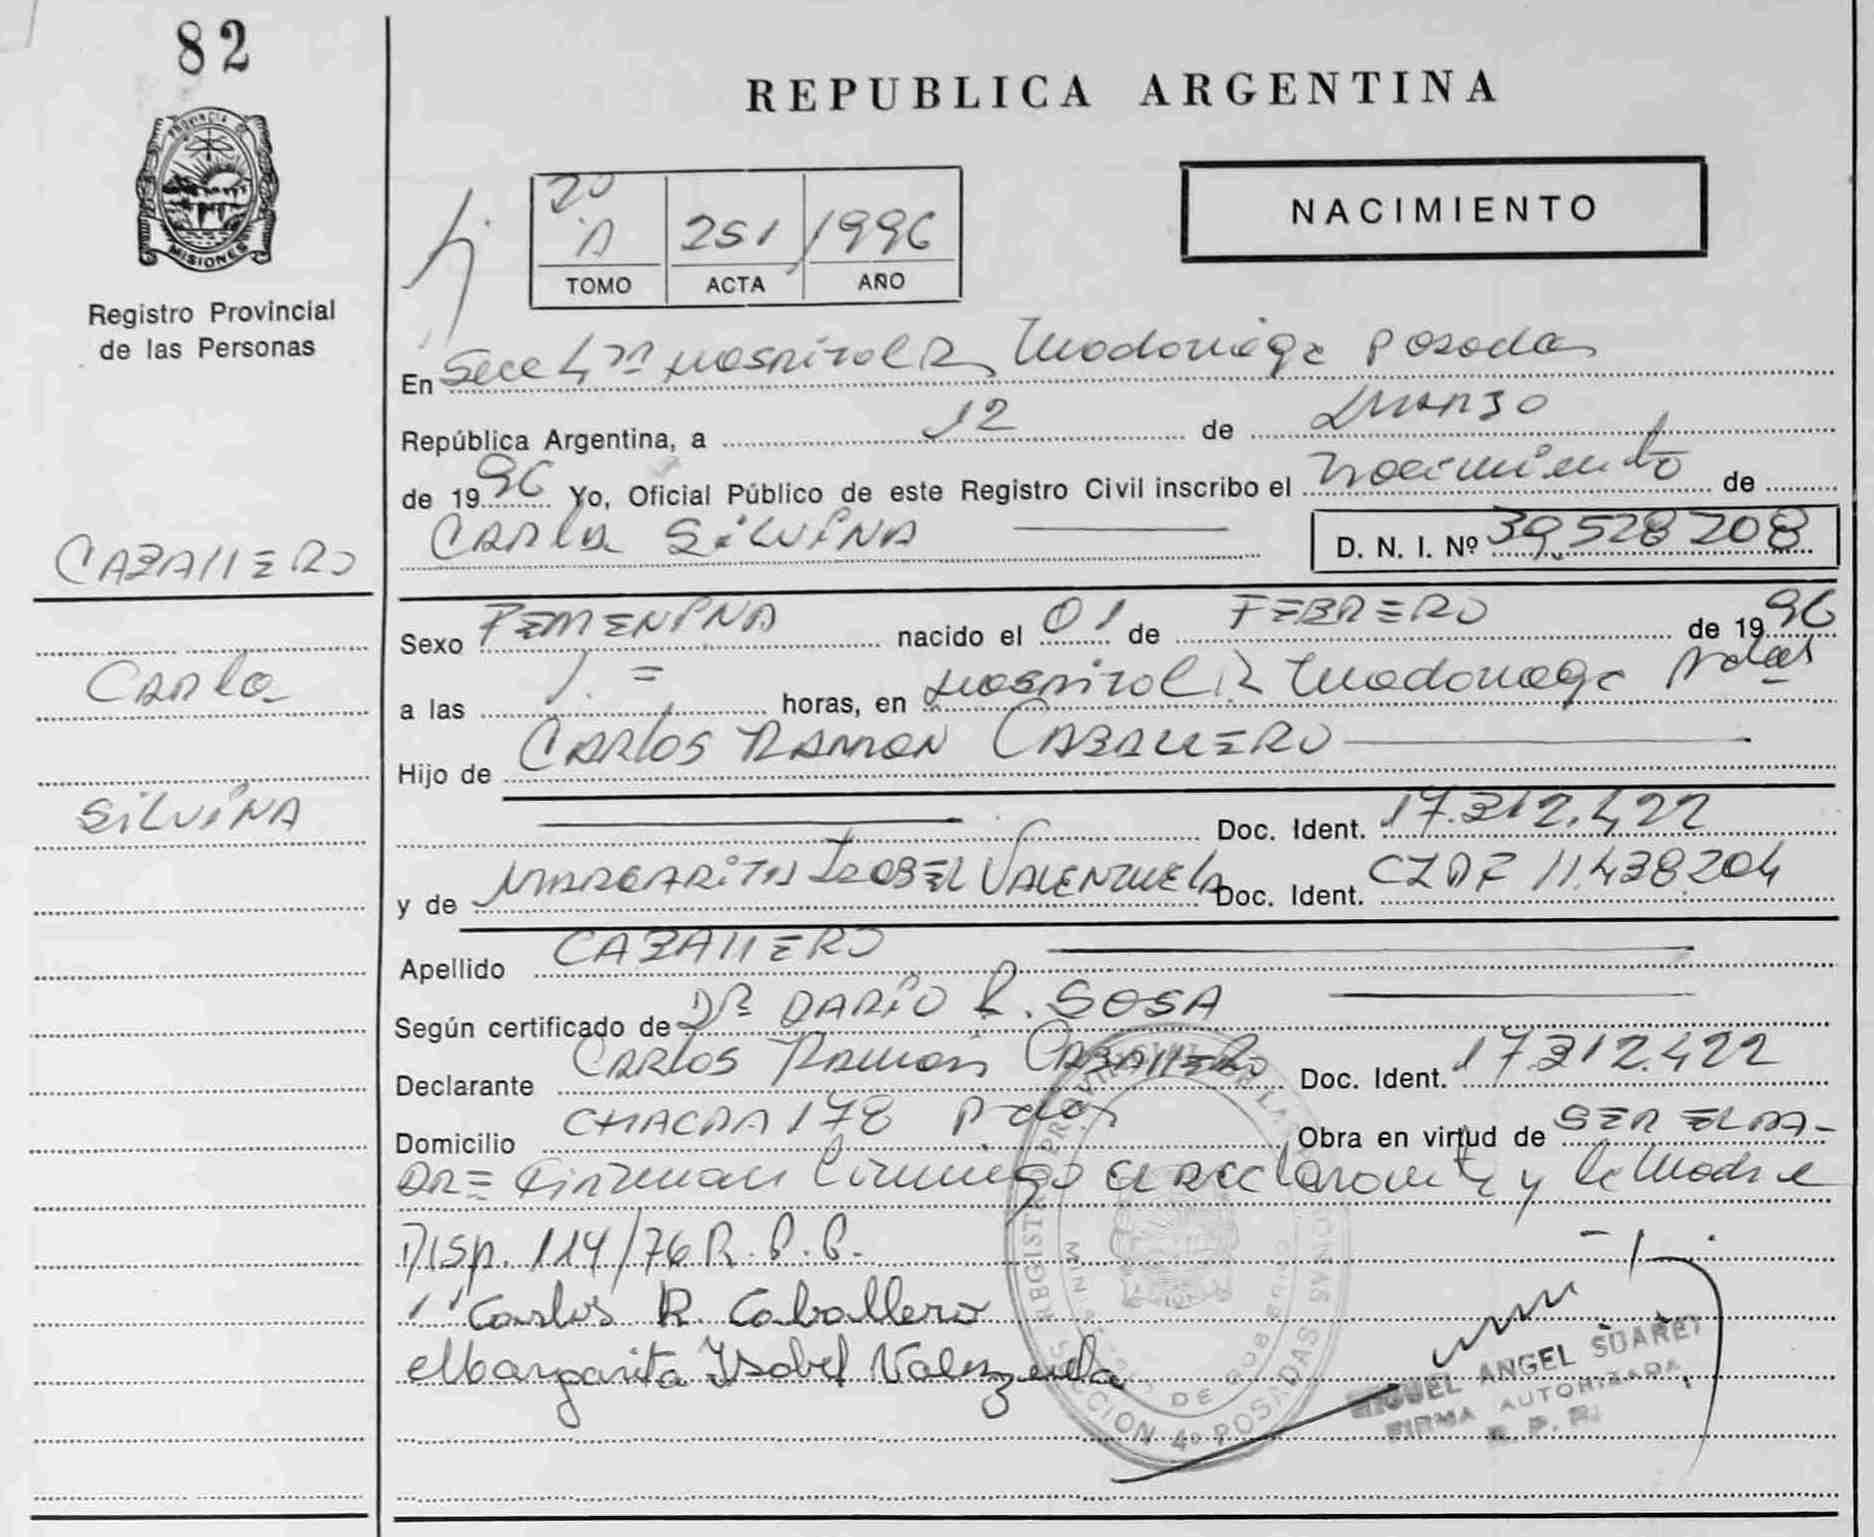 82
REPUBLICA ARGENTINA
PROVINCIA DE
MISIONES
Registro Provincial
de las Personas
20
A 251 1996
TOMO ACTA AÑO
NACIMIENTO
En Secc 4ª Hospital R. Madariaga Posadas
República Argentina, a 12 de Marzo
de 1996 Yo, Oficial Público de este Registro Civil inscribo el Nacimiento de
CARLA SILVINA D. N. I. Nº 39.528.208
CABALLERO
CARLA
SILVINA
Sexo FEMENINA nacido el 01 de FEBRERO de 1996
a las 1.= horas, en Hospital R. Madariaga Pdas
Hijo de CARLOS RAMON CABALLERO
Doc. Ident. 17.312.422
y de MARGARITA ISABEL VALENZUELA Doc. Ident. 11.438.204
Apellido CABALLERO
Según certificado de DR. DARIO R. SOSA
Declarante CARLOS RAMON CABALLERO Doc. Ident. 17.312.422
Domicilio CHACRA 178 Pdas Obra en virtud de SER EL PA-
DRE Firman Conmigo el Declarante y la Madre
DISP. 114/76 R.P.P.
Carlos R. Caballero
Margarita Isabel Valenzuela
MIGUEL ANGEL SUAREZ
FIRMA AUTORIZADA
R. P. P.
REGISTRO PROVINCIAL DE LAS PERSONAS
SECCION 4º POSADAS